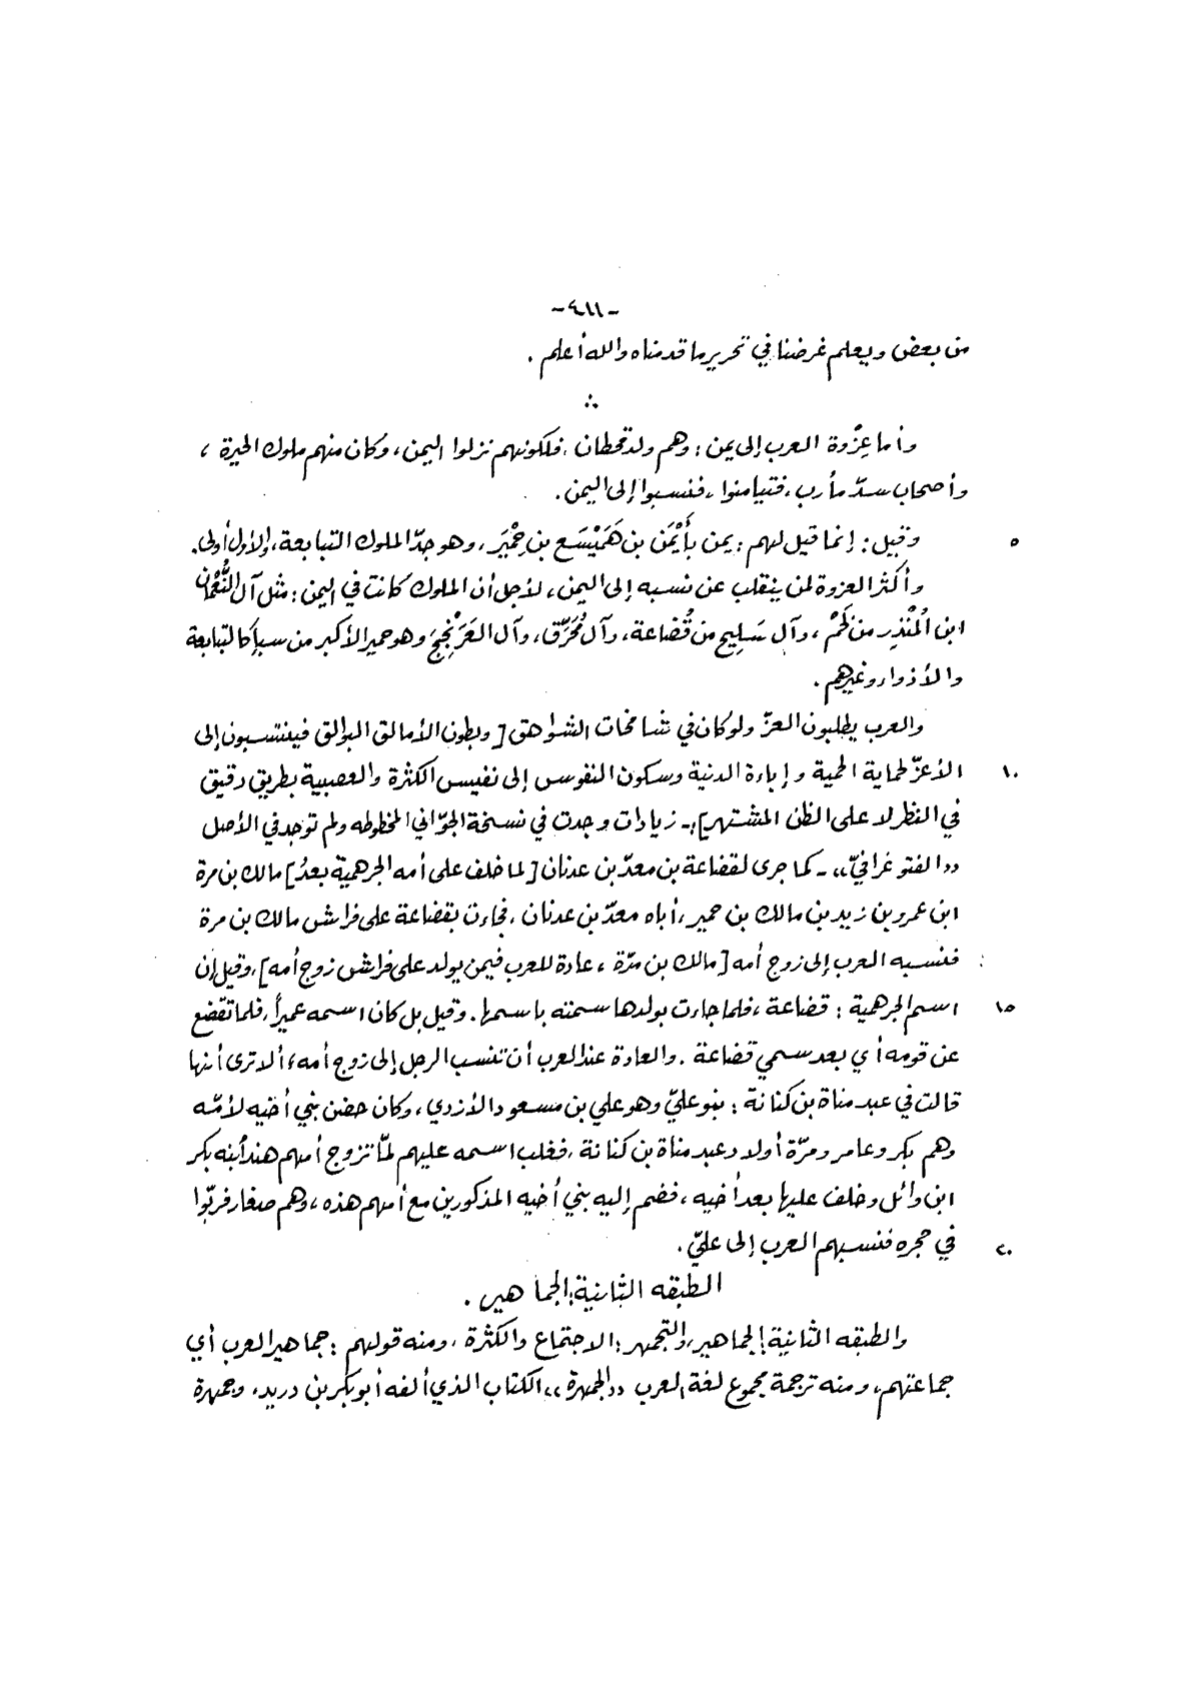 -٤١١-
من بعض ويعلم غرضنا في تحرير ما قدمناه والله أعلم .
∴
وأما عِزْوة العرب إلى يمن : وهم ولد قحطان ، فلكونهم نزلوا اليمن ، وكان منهم ملوك الحيرة ،
وأصحاب سدّ مأرب ، فتيامنوا ، فنسبوا إلى اليمن .
وقيل : إنما قيل لهم : يمن بأَيْمَن بن هَمَيْسَع بن حِمْيَر ، وهو جدّ الملوك التبابعة ، والأول أولى .
٥
وأكثر العزوة لمن ينقلب عن نسبه إلى اليمن ، لأجل أن الملوك كانت في اليمن : مثل آل النُّعْمان
ابن المُنْذِر من لَخْم ، وآل سَلِيح من قُضاعة ، وآل مُحَرِّق ، وآل العَرَنْجَج وهو حمير الأكبر من سبأ كالتبابعة
والأذواء وغيرهم .
والعرب يطلبون العزّ ولو كان في شامخات الشواهق [ وبطون الأمالق البوالق فينتسبون إلى
الأعزّ لحماية الحمية وإباءة الدنية وسكون النفوس إلى نفيس الكثرة والعصبية بطريق دقيق
١٠
في النظر لا على الظن المشتهر ] ،- زيادات وجدت في نسخة الجوّاني المخطوطه ولم توجد في الأصل
«الفتوغرافيّ» - كما جرى لقضاعة بن معدّ بن عدنان [ لما خلف على أمه الجرهمية بعدُ ] مالك بن مرة
ابن عمرو بن زيد بن مالك بن حمير ، أباه معدّ بن عدنان ، فجاءت بقضاعة على فراش مالك بن مرة
فنسبه العرب إلى زوج أمه [ مالك بن مرّة ، عادة للعرب فيمن يولد على فراش زوج أمه ] ، وقيل إن
اسم الجرهمية : قضاعة ، فلما جاءت بولدها سمته باسمها . وقيل بل كان اسمه عميراً ، فلما تقضع
١٥
عن قومه أي بعد سمي قضاعة . والعادة عند العرب أن تنسب الرجل إلى زوج أمه ، ألا ترى أنها
قالت في عبد مناة بن كنانة : بنو عليّ وهو علي بن مسعود الأزدي ، وكان حضن بني أخيه لأمّه
وهم بكر وعامر ومرّة أولاد عبد مناة بن كنانة ، فغلب اسمه عليهم لمّا تزوج أمهم هند ابنه بكر
ابن وائل وخلف عليها بعد أخيه ، فضم إليه بني أخيه المذكورين مع أمهم هذه ، وهم صغار فربّوا
في حجره فنسبهم العرب إلى عليّ .
٢٠
الطبقه الثانية : الجماهير .
والطبقه الثانية : الجماهير ، والتجمهر : الاجتماع والكثرة ، ومنه قولهم : جماهير العرب أي
جماعتهم ، ومنه ترجمة مجموع لغة العرب «الجمهرة» الكتاب الذي ألفه أبو بكر بن دريد ، وجمهرة